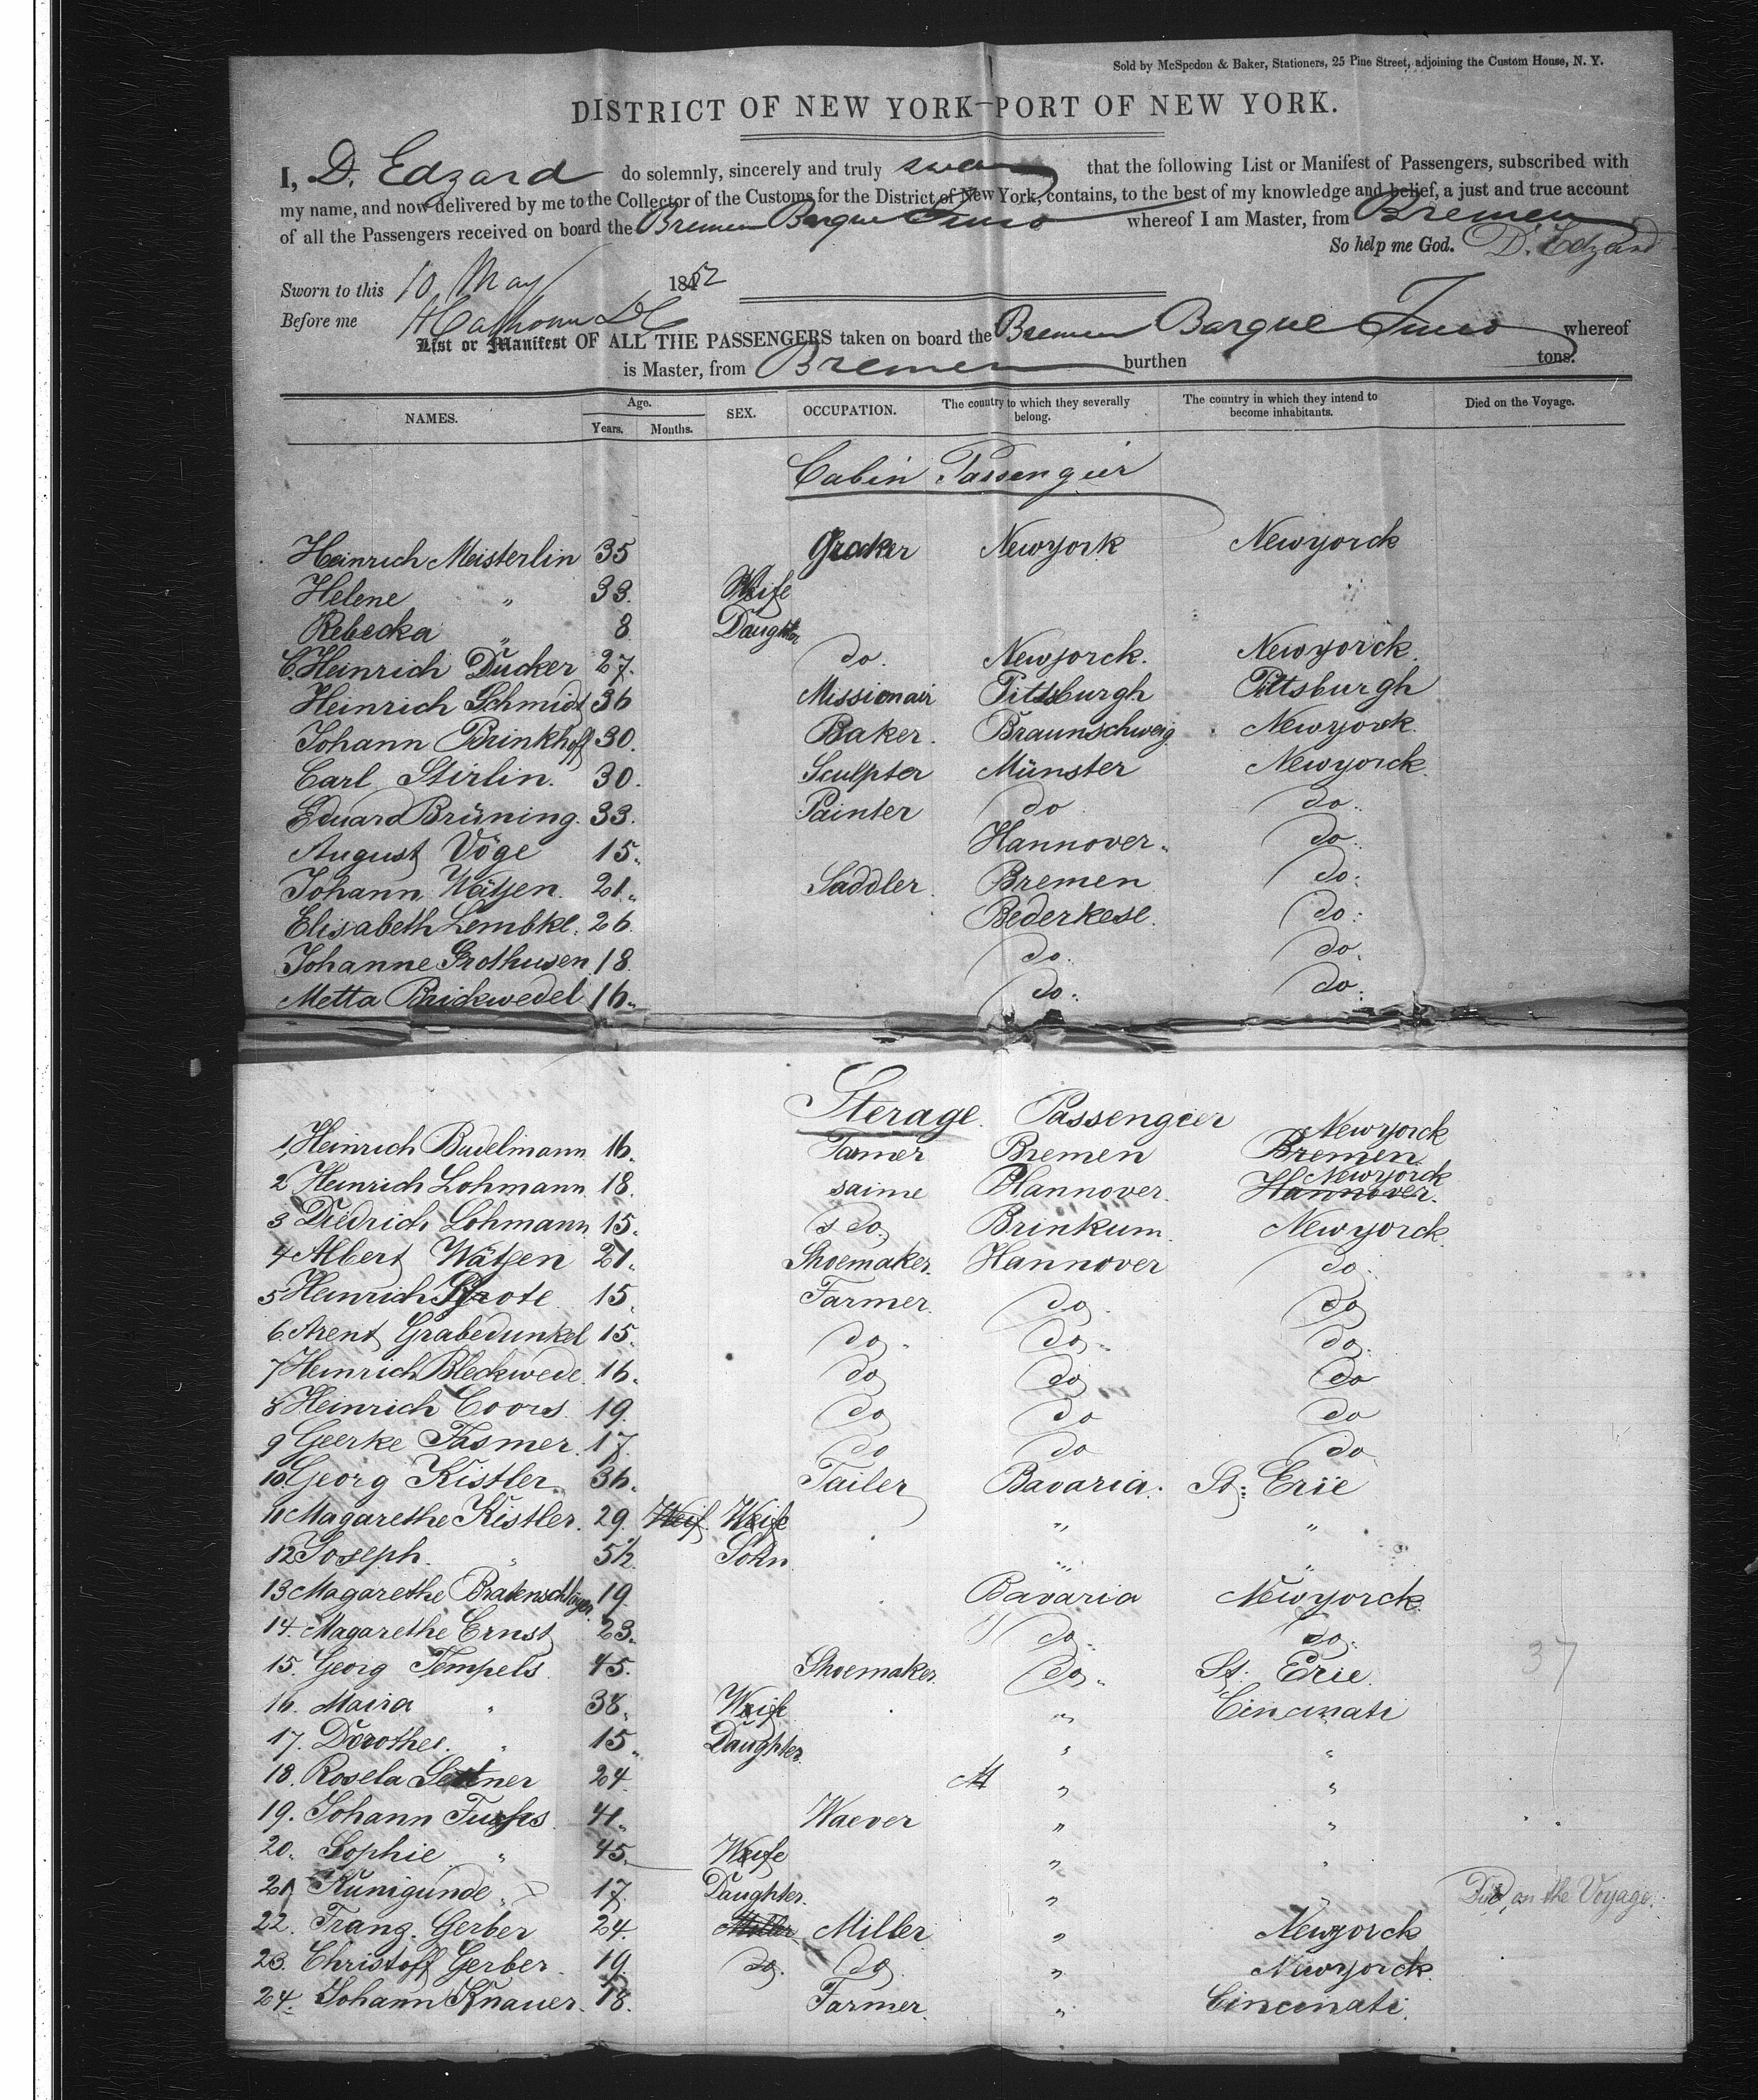 Sold by McSpedon & Baker, Stationers, 25 Pine Street, adjoining the Custom House, N. Y.
DISTRICT OF NEW YORK—PORT OF NEW YORK.
I, D. Edzard do solemnly, sincerely and truly swear that the following List or Manifest of Passengers, subscribed with
my name, and now delivered by me to the Collector of the Customs for the District of New York, contains, to the best of my knowledge and belief, a just and true account
of all the Passengers received on board the Bremen Barque Juno whereof I am Master, from Bremen
So help me God. D. Edzard
Sworn to this 10 May 1852
Before me
List or Manifest OF ALL THE PASSENGERS taken on board the Bremen Barque Juno whereof
is Master, from Bremen burthen tons.
NAMES. Age. Years. Months. SEX. OCCUPATION. The country to which they severally belong. The country in which they intend to become inhabitants. Died on the Voyage.
Cabin Passengier
Heinrich Meisterlin 35 Newyork Newyorck
Helene " 33. Weife "
Rebecka " 8 Daughter
C. Heinrich Dücker 27. do. Newyorck. Newyorck.
Heinrich Schmidt 36 Missionair Pittsburgh Pittsburgh
Johann Brinkhoff 30. Baker. Braunschweig. Newyorck.
Carl Stirlin. 30. Sculpter Münster Newyorck.
Eduard Brüning. 33. Painter do do.
August Vöge 15. Hannover. do.
Johann Wätjen. 21. Saddler. Bremen do.
Elisabeth Lembke. 26. Bederkese. do.
Johanne Grothusen 18. do. do.
Metta Brickwedel 16. do. do.
Sterage Passengier
1. Heinrich Budelmann 16. Farmer Bremen Bremen Newyorck
2 Heinrich Lohmann 18. saime Hannover. Hannover. Newyorck
3 Diedrich Lohmann 15. s do. Brinkum. Newyorck.
4 Albert Wätjen 21. Shoemaker. Hannover do.
5 Heinrich Grote 15. Farmer. do. do
6. Arent Grabedunkel 15. do. do. do.
7 Heinrich Bleckwede. 16. do do do
8 Heinrich Coors. 19. do do do
9 Geerke Fasmer. 17. do do do
10. Georg Kistler. 36. Tailer Bavaria. St. Erie
11 Magarethe Kistler. 29. Weif. Weife " "
12 Joseph. " 5½ Sohn " "
13 Magarethe 19. Bavaria Newyorck.
14. Magarethe Ernst 23. do. do.
15. Georg Tempels. 45. Shoemaker. do. St. Erie. 37
16. Maira " 38. Weife " Cincinati
17. Dorothee. " 15. Daughter. " "
18. Rosela 24. " "
19. Johann 41. Waever " "
20. Sophie " 45. Weife " "
21 Kunigunde " 17. Daughter. " " Died on the Voyage.
22. Franz. Gerber 24. Miller Miller " Newyorck
23. Christoff Gerber. 19. do. do. " Newyorck.
24. Johann Knauer. 18. Farmer. " Cincinati.